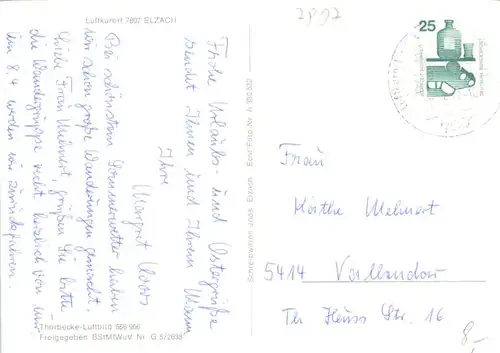 Luftkurort 7807 ELZACH
Frohe Urlaubs- und Ostergrüße
sendet Ihnen und Ihrem Mann
Ihre
Margret
Bei schönstem Sommerwetter haben
wir schon große Wanderungen gemacht.
Liebe Frau Mehnert, grüßen Sie bitte
die Wandergruppe recht herzlich von mir
im 8.4 werden wir zurückfahren.
Thorbecke-Luftbild 669 906
Freigegeben BStMtWuV Nr. G 5/2638
Schreibwaren Elzach Foto Nr. A 352532
25
Frau
Käthe Mehnert
5414 Vallendar
Th Heuss Str. 16
8,-